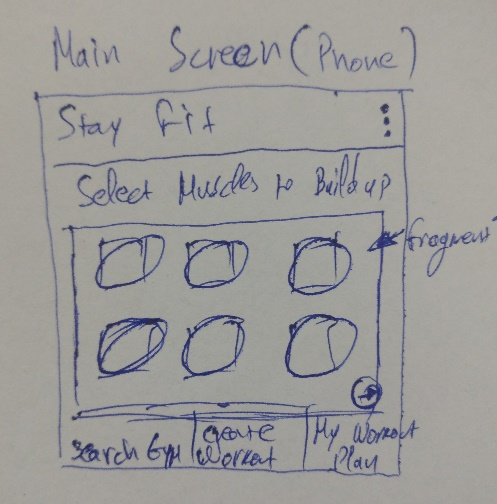 Main Screen (Phone)
Stay Fit
Select Muscles to Build up
fragment
Search Gym
Create Workout
My Workout Plan